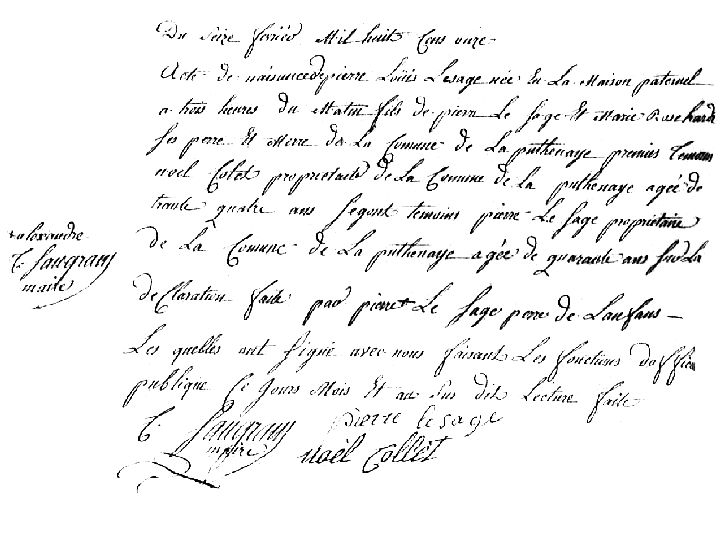 Du seize fevrier Mil huit Cens onze
Acte de naisance de pierre Loüis Lesage née En La Maison paternel
a trois heures du Matin fils de pierre Le Sage Et Marie Rose hardi
ses perre Et Merre de La Comune de La puthenaye premier Temoin
noel Colet proprietaire de La Comune de La puthenaye agée de
trante quatre ans Segont temoins pierre Le Sage propriétaire
de La Comune de La puthenaye agée de quarante ans Sur La
deClaration faite par pierre Le Sage perre de Lanfans
Les quelles ont Signé avec nous faisant Les fonctions doffficier
publique Ce Jours Mois Et an Sus dit Lecture faite
alexandre
maire
pierre lesage
noël Collet